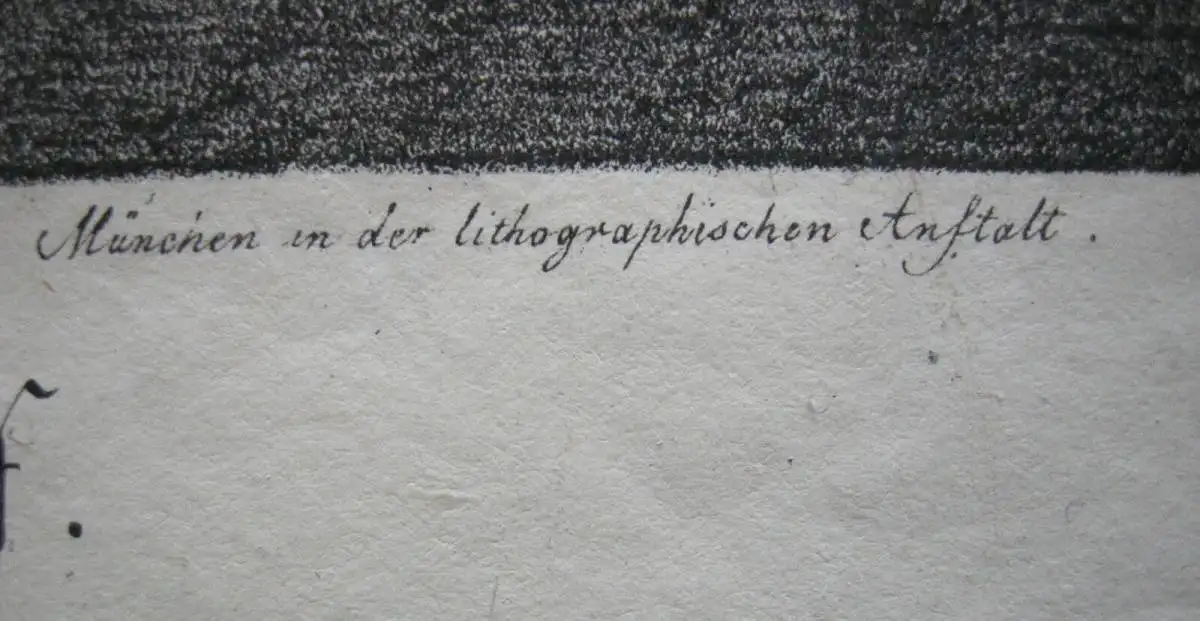 München in der lithographischen Anſtalt .